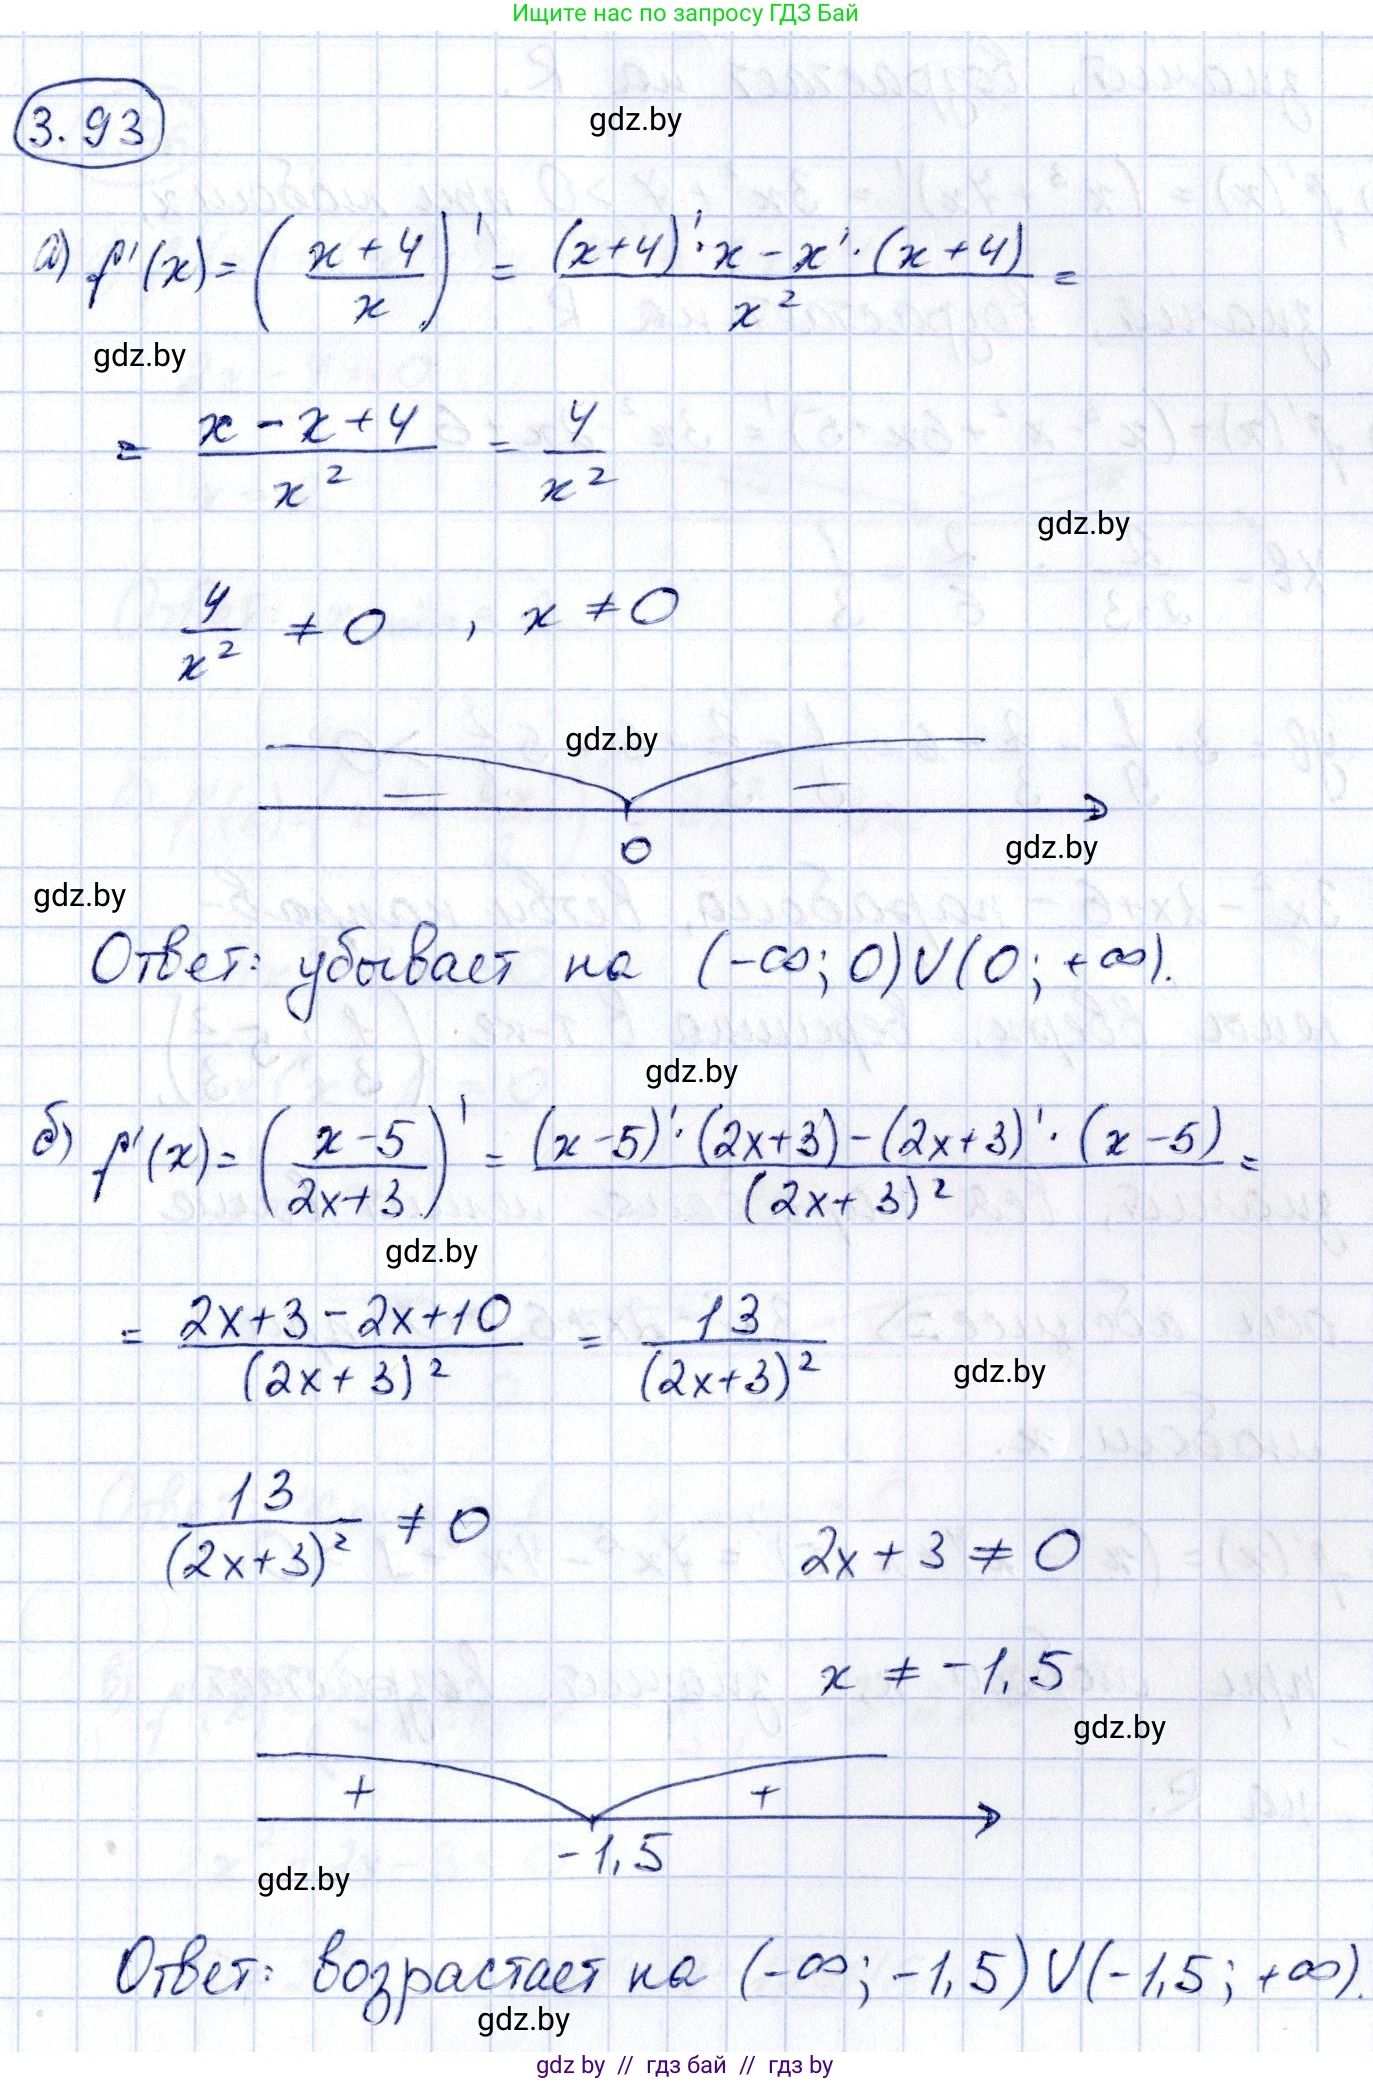 Ищите нас по запросу ГДЗ Бай
3.93
gdz.by
а) f'(x) = ( (x+4)/x )' = ((x+4)'·x − x'·(x+4))/x² =
gdz.by
= (x−x+4)/x² = 4/x²
gdz.by
4/x² ≠ 0 , x ≠ 0
gdz.by
− −
0
gdz.by
gdz.by
Ответ: убывает на (−∞; 0)∪(0; +∞).
gdz.by
б) f'(x) = ( (x−5)/(2x+3) )' = ((x−5)'·(2x+3) − (2x+3)'·(x−5))/(2x+3)² =
gdz.by
= (2x+3−2x+10)/(2x+3)² = 13/(2x+3)²
gdz.by
13/(2x+3)² ≠ 0 2x+3 ≠ 0
x ≠ −1,5
gdz.by
+ +
−1,5
gdz.by
Ответ: возрастает на (−∞; −1,5)∪(−1,5; +∞).
gdz.by
gdz by // гдз бай // гдз by